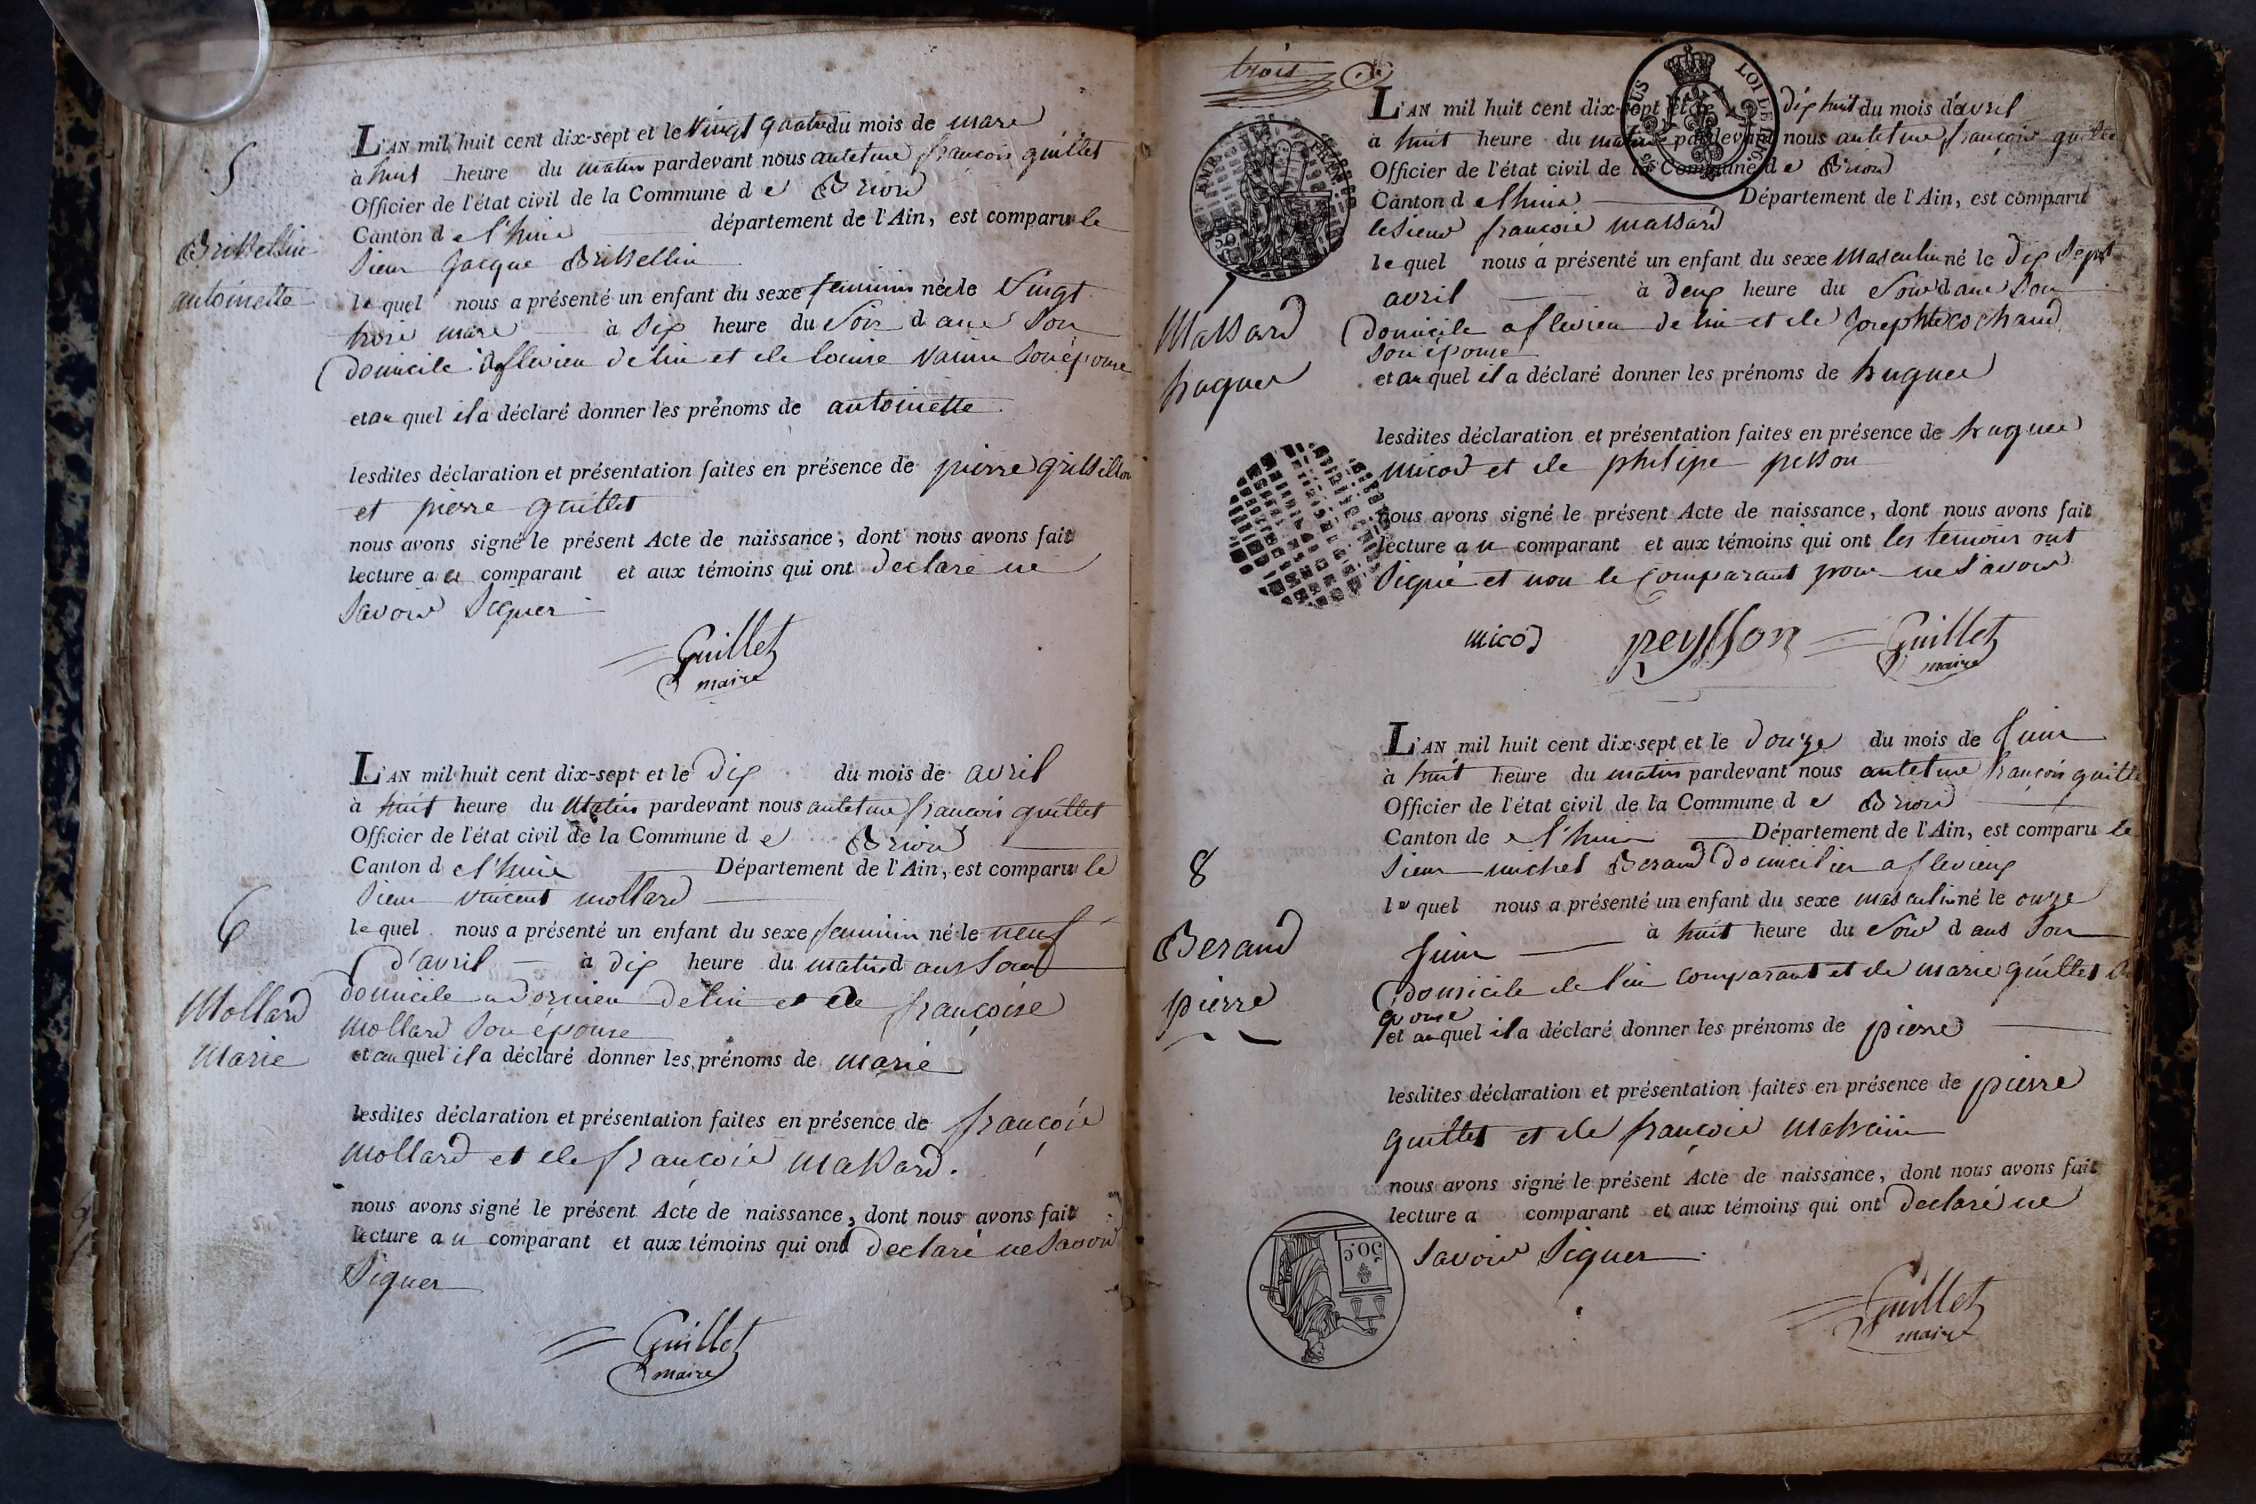 5
Brissellin
antoinette
L'AN mil huit cent dix-sept et le vingt quatre du mois de mars
à huit heure du matin pardevant nous françois guillet
Officier de l'état civil de la Commune d e Brion
Canton d département de l'Ain, est comparu le
Sieur Jacque Brissellin
le quel nous a présenté un enfant du sexe feminin née le vingt
trois mars à dix heure du soir dans son
domicile flevieu de lui et de louise son épouse
et au quel il a déclaré donner les prénoms de antoinette
lesdites déclaration et présentation faites en présence de pierre
et pierre guillet
nous avons signé le présent Acte de naissance, dont nous avons fait
lecture au comparant et aux témoins qui ont declaré ne
savoir signer
Guillet
maire
6
Mollard
Marie
L'AN mil huit cent dix-sept et le dix du mois de avril
à huit heure du matin pardevant nous françois guillet
Officier de l'état civil de la Commune d e Brion
Canton d Département de l'Ain, est comparu le
Sieur vincent mollard
le quel nous a présenté un enfant du sexe feminin né le neuf
d'avril à dix heure du matin dans son
domicile a dornieu de lui et de françoise
mollard son épouse
et au quel il a déclaré donner les prénoms de marie
lesdites déclaration et présentation faites en présence de françois
mollard et de françois massard.
nous avons signé le présent Acte de naissance, dont nous avons fait
lecture au comparant et aux témoins qui ont declaré ne savoir
signer
Guillet
maire
trois
7
Massard
hugues
L'AN mil huit cent dix-sept et le dix huit du mois d'avril
à huit heure du matin pardevant nous françois
Officier de l'état civil de la Commune d e Brion
Canton d Département de l'Ain, est comparu
le sieur françois massard
le quel nous a présenté un enfant du sexe masculin né le dix sept
avril à deux heure du soir dans son
domicile a flevieu de lui et de
son épouse
et au quel il a déclaré donner les prénoms de hugues
lesdites déclaration et présentation faites en présence de hugues
micod et de philipe
nous avons signé le présent Acte de naissance, dont nous avons fait
lecture au comparant et aux témoins qui ont les temoins ont
signé et non le comparant pour ne savoir
micod peysson Guillet
maire
8
Beraud
pierre
L'AN mil huit cent dix-sept et le douze du mois de juin
à huit heure du matin pardevant nous françois
Officier de l'état civil de la Commune d e Brion
Canton de Département de l'Ain, est comparu le
Sieur michel Beraud domicilier a flevieux
le quel nous a présenté un enfant du sexe masculin né le onze
juin à huit heure du soir dans son
domicile de lui comparant et de marie guillet
épouse
et au quel il a déclaré donner les prénoms de pierre
lesdites déclaration et présentation faites en présence de pierre
guillet et de françois
nous avons signé le présent Acte de naissance, dont nous avons fait
lecture a comparant et aux témoins qui ont declaré ne
savoir signer
50 c.
Guillet
maire